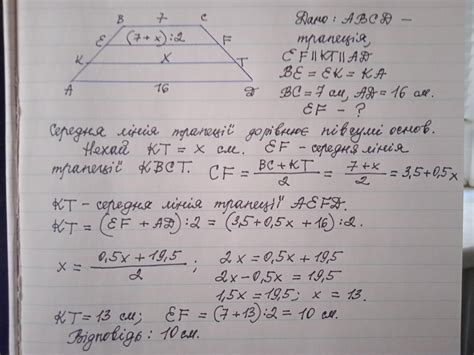 B 7 C
E (7+x):2 F
K x T
A 16 D
Дано: ABCD –
трапеція,
EF ∥ KT ∥ AD
BE = EK = KA
BC = 7 см, AD = 16 см.
EF – ?
Середня лінія трапеції дорівнює півсумі основ.
Нехай KT = x см. EF – середня лінія
трапеції KBCT. CF = (BC + KT)/2 = (7+x)/2 = 3,5+0,5x
KT – середня лінія трапеції AEFD.
KT = (EF + AD):2 = (3,5+0,5x + 16):2.
x = (0,5x + 19,5)/2 ; 2x = 0,5x + 19,5
2x – 0,5x = 19,5
1,5x = 19,5; x = 13.
KT = 13 см; EF = (7+13):2 = 10 см.
Відповідь: 10 см.